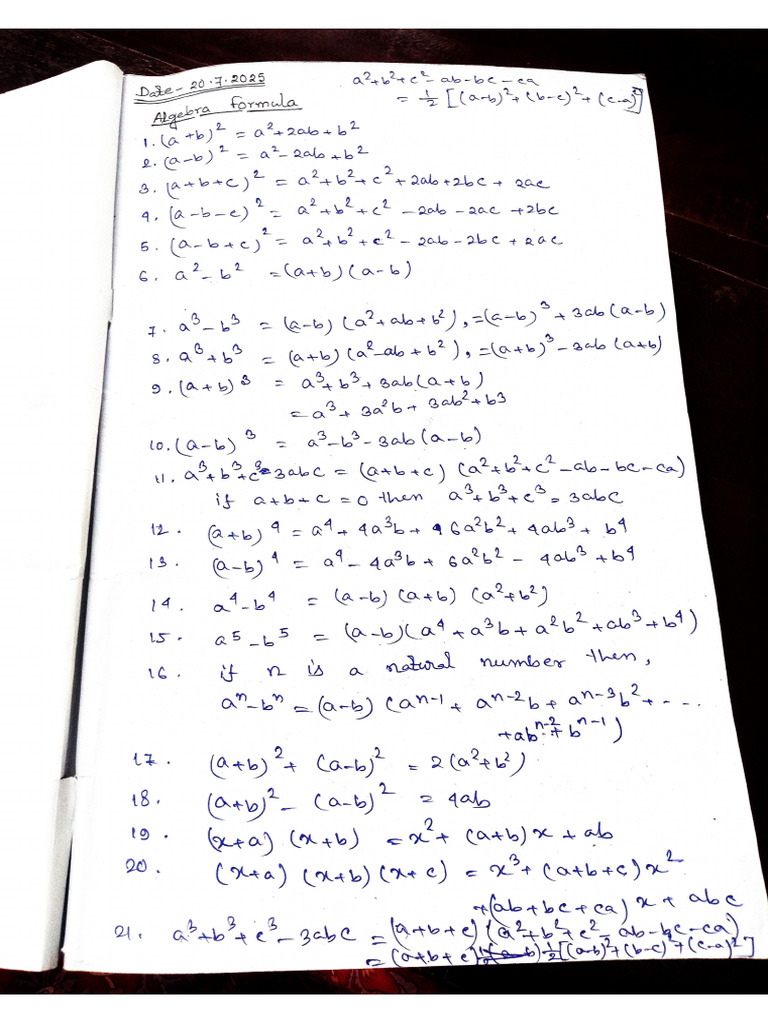 Date - 20.7.2025
a²+b²+c²-ab-bc-ca
= ½ [(a-b)²+(b-c)²+(c-a)²]
Algebra formula
1. (a+b)² = a²+2ab+b²
2. (a-b)² = a²-2ab+b²
3. (a+b+c)² = a²+b²+c²+2ab+2bc+2ac
4. (a-b-c)² = a²+b²+c² -2ab-2ac +2bc
5. (a-b+c)² = a²+b²+c²-2ab-2bc+2ac
6. a²-b² = (a+b)(a-b)
7. a³-b³ = (a-b)(a²+ab+b²), =(a-b)³+3ab(a-b)
8. a³+b³ = (a+b)(a²-ab+b²), =(a+b)³-3ab(a+b)
9. (a+b)³ = a³+b³+3ab(a+b)
= a³+3a²b+3ab²+b3
10. (a-b)³ = a³-b³-3ab(a-b)
11. a³+b³+c³-3abc = (a+b+c)(a²+b²+c²-ab-bc-ca)
if a+b+c=0 then a³+b³+c³=3abc
12. (a+b)⁴ = a⁴+4a³b+6a²b²+4ab³+b⁴
13. (a-b)⁴ = a⁴-4a³b+6a²b²-4ab³+b⁴
14. a⁴-b⁴ = (a-b)(a+b)(a²+b²)
15. a⁵-b⁵ = (a-b)(a⁴+a³b+a²b²+ab³+b⁴)
16. if n is a natural number then,
aⁿ-bⁿ = (a-b)(aⁿ⁻¹+aⁿ⁻²b+aⁿ⁻³b²+....
+abⁿ⁻²+bⁿ⁻¹)
17. (a+b)²+(a-b)² = 2(a²+b²)
18. (a+b)²-(a-b)² = 4ab
19. (x+a)(x+b) = x²+(a+b)x+ab
20. (x+a)(x+b)(x+c) = x³+(a+b+c)x²
+(ab+bc+ca)x+abc
21. a³+b³+c³-3abc = (a+b+c)(a²+b²+c²-ab-bc-ca)
= (a+b+c) ½[(a-b)²+(b-c)²+(c-a)²]